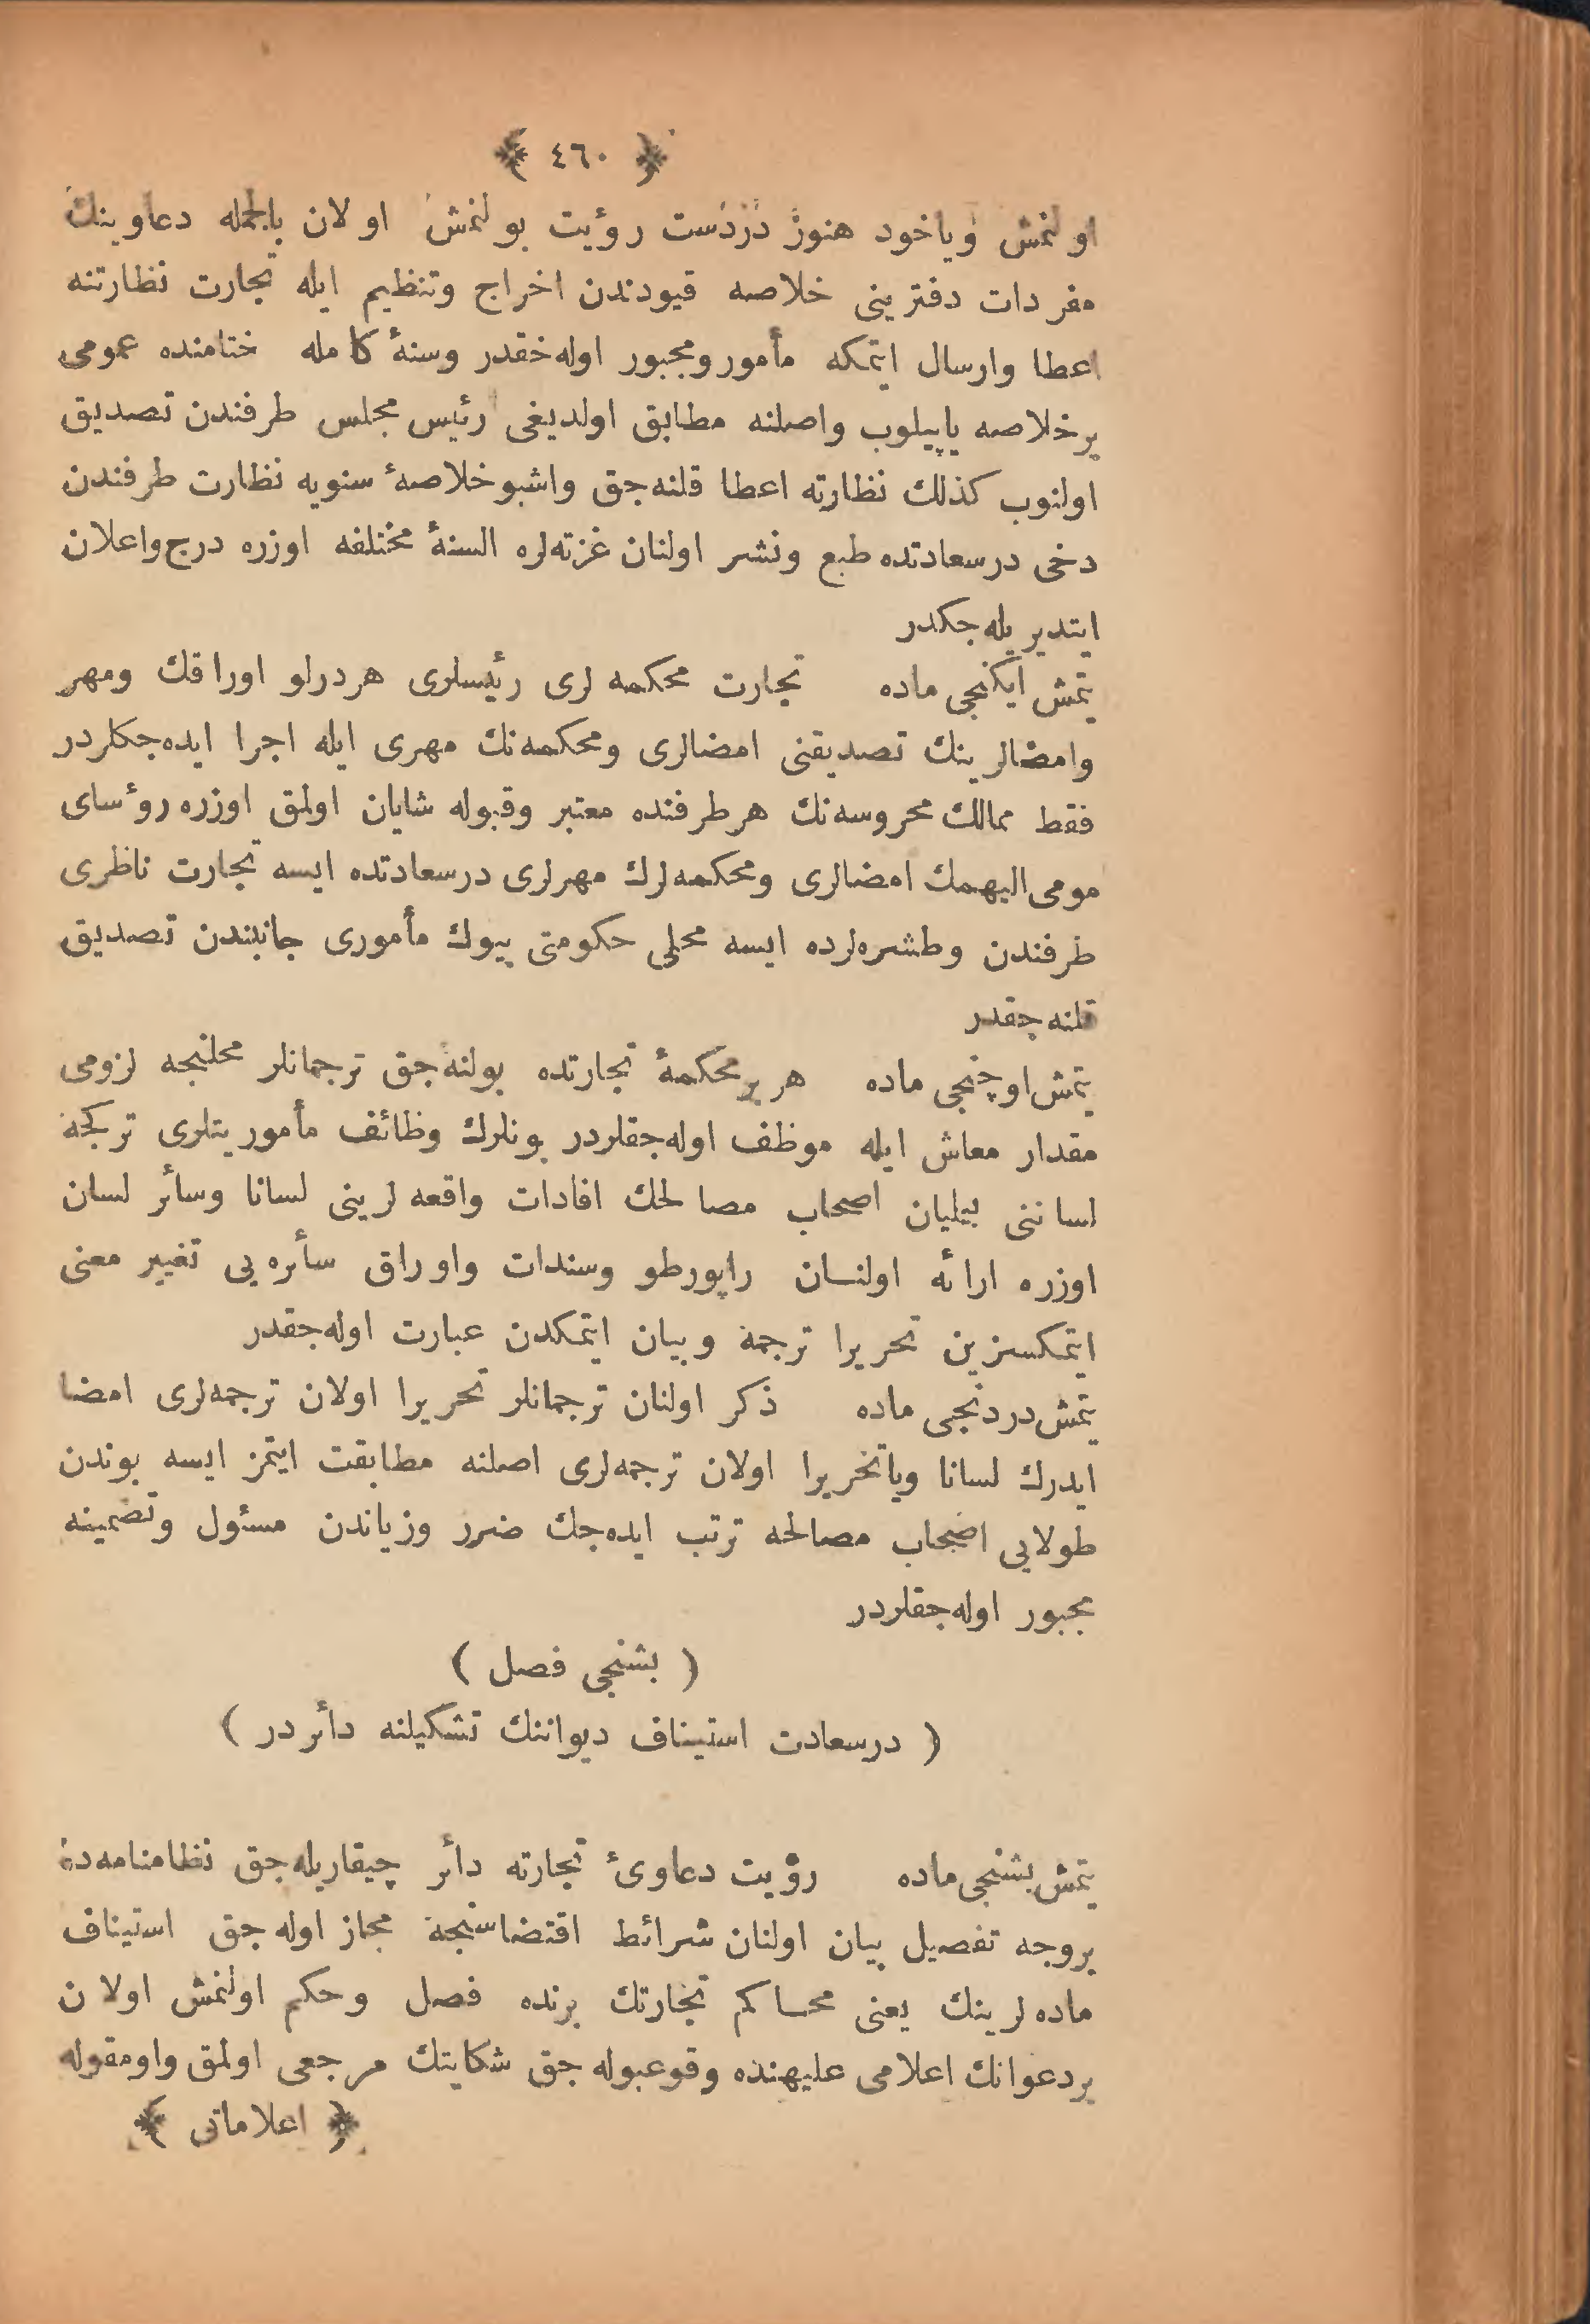 ﴿ ٤٦٠ ﴾
اولنمش وياخود هنوز دردست رؤيت بولنمش اولان بالجمله دعاوينك
مفردات دفترينى خلاصه قيودندن اخراج وتنظيم ايله تجارت نظارتنه
اعطا وارسال ايتمكه مأمور ومجبور اوله‌جقدر وسنۀ كامله ختامنده عمومى
برخلاصه ياپيلوب واصلنه مطابق اولديغى رئيس مجلس طرفندن تصديق
اولنوب كذلك نظارته اعطا قلنه‌جق واشبو خلاصۀ سنويه نظارت طرفندن
دخى درسعادتده طبع ونشر اولنان غزته‌لره السنۀ مختلفه اوزره درج واعلان
ايتديريله‌جكدر
يتمش ايكنجى ماده تجارت محكمه لرى رئيسلرى هردرلو اوراقك ومهر
وامضالرينك تصديقنى امضالرى ومحكمه‌نك مهرى ايله اجرا ايده‌جكلردر
فقط ممالك محروسه‌نك هرطرفنده معتبر وقبوله شايان اولمق اوزره رؤساى
مومى اليهمك امضالرى ومحكمه‌لرك مهرلرى درسعادتده ايسه تجارت ناظرى
طرفندن وطشره‌لرده ايسه محلى حكومتى بيوك مأمورى جانبندن تصديق
قلنه‌جقدر
يتمش اوچنجى ماده هر بر محكمۀ تجارتده بولنه‌جق ترجمانلر محلنجه لزومى
مقدار معاش ايله موظف اوله‌جقلردر بونلرك وظائف مأموريتلرى تركجه
لساننى بيليان اصحاب مصالحك افادات واقعه لرينى لسانا وسائر لسان
اوزره ارائه اولنان راپورطو وسندات واوراق سائره‌يى تغيير معنى
ايتمكسزين تحريرا ترجمه وبيان ايتمكدن عبارت اوله‌جقدر
يتمش دردنجى ماده ذكر اولنان ترجمانلر تحريرا اولان ترجمه‌لرى امضا
ايدرك لسانا وياتحريرا اولان ترجمه‌لرى اصلنه مطابقت ايتمز ايسه بوندن
طولايى اصحاب مصالحه ترتب ايده‌جك ضرر وزياندن مسئول وتضمينه
مجبور اوله‌جقلردر
( بشنجى فصل )
( درسعادت استيناف ديواننك تشكيلنه دائردر )
يتمش بشنجى ماده رؤيت دعاوئ تجارته دائر چيقاريله‌جق نظامنامه‌ده
بروجه تفصيل بيان اولنان شرائط اقتضاسنجه مجاز اوله‌جق استيناف
ماده لرينك يعنى محاكم تجارتك برنده فصل وحكم اولنمش اولان
بردعوانك اعلامى عليهنده وقوعبوله جق شكايتك مرجعى اولمق واومقوله
﴿ اعلاماتى ﴾